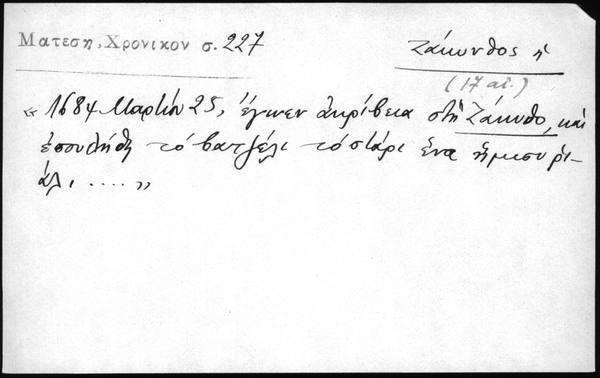 Ματεση, Χρονικον σ. 227
Ζάκυνθος ἡ
(17 αἰ.)
« 1684 Μαρτίου 25, ἔγινεν ἀκρίβεια στὴ Ζάκυνθο, καὶ
ἐπουλήθη τὸ βατζέλι τὸ σιτάρι ἕνα ἥμισυ ρι-
άλι .... »